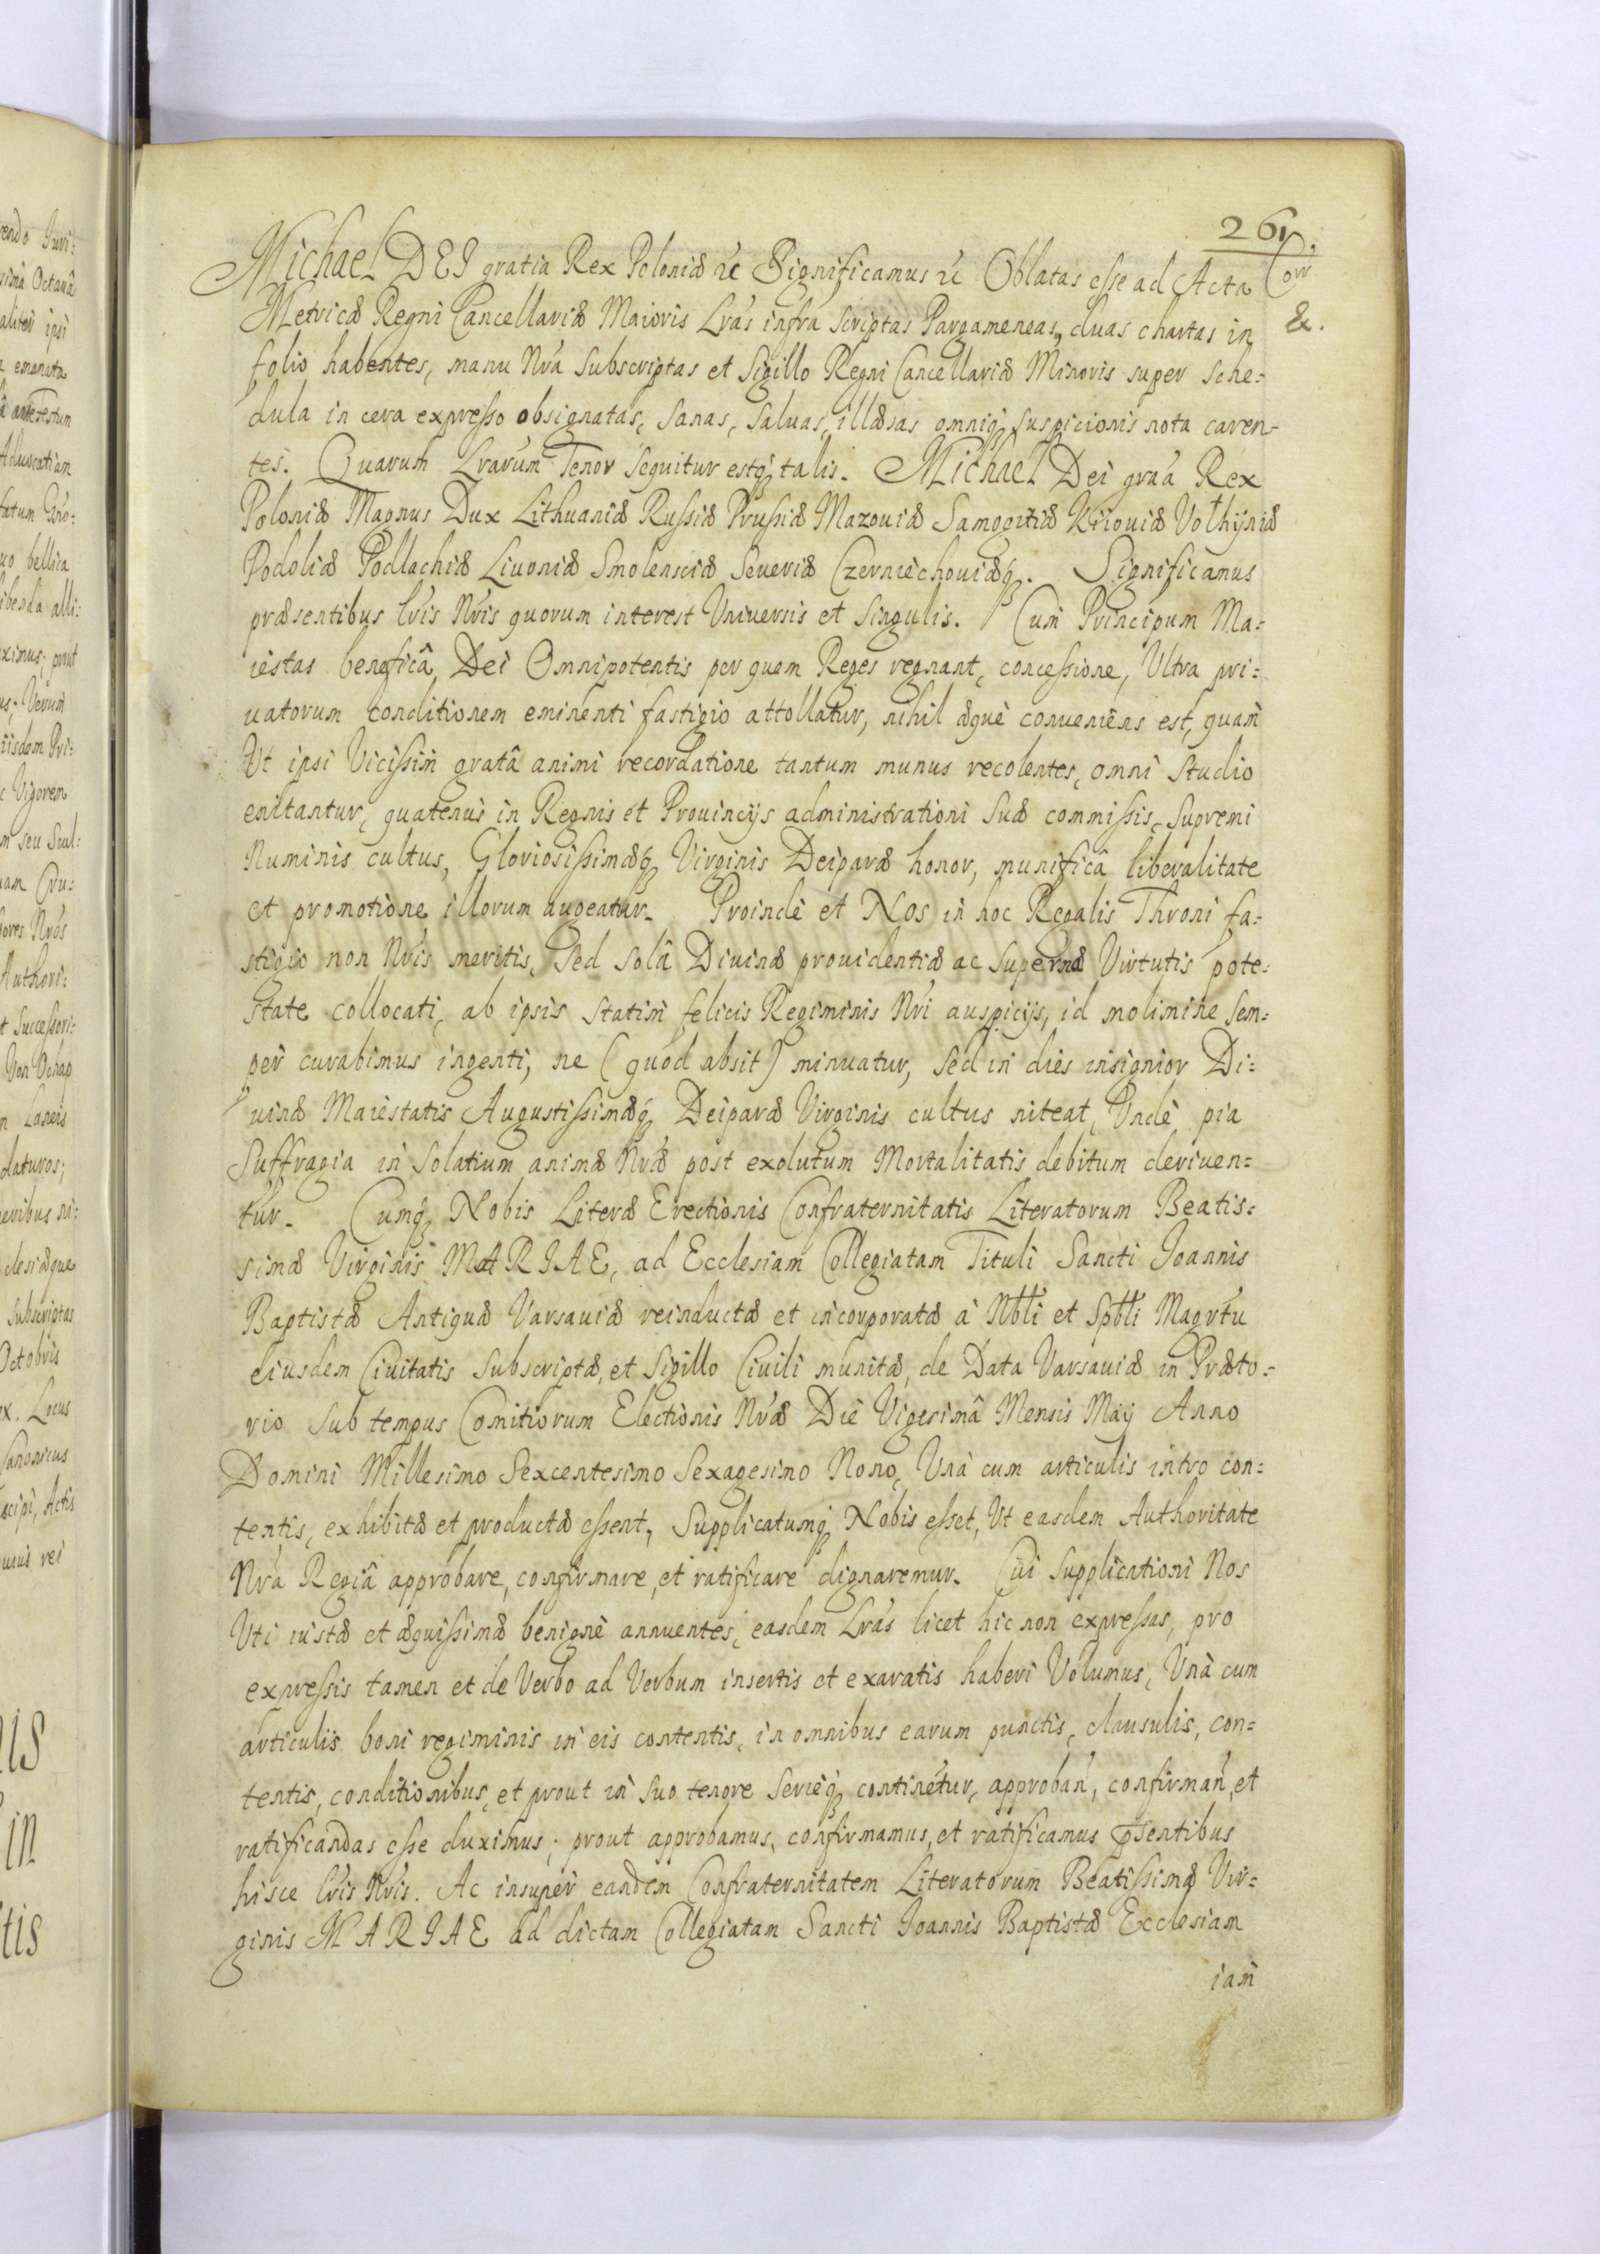 261.
Michael DEI gratia Rex Poloniæ &c Significamus &c Oblatas esse ad Acta
Metricæ Regni Cancellariæ Maioris Lrãs infra scriptas Pargameneas, duas chartas in &.
folio habentes, manu Nrã subscriptas et Sigillo Regni Cancellariæ Minoris super sche=
dula in cera expresso obsignatas, sanas, saluas, illæsas omniq; suspicionis nota caren-
tes. Quarum Lrarum Tenor sequitur estq; talis. Michael Dei grãa Rex
Poloniæ Magnus Dux Lithuaniæ Russiæ Prussiæ Mazouiæ Samogitiæ Kiiouiæ Volhyniæ
Podoliæ Podlachiæ Liuoniæ Smolensciæ Seueriæ Czerniechouiæq;. Significamus
præsentibus lris Nris quorum interest Vniuersis et singulis. Cum Principum Ma=
iestas beneficâ Dei Omnipotentis per quem Reges regnant, concessione, Vltra pri=
uatorum conditionem eminenti fastigio attollatur, nihil æquè conueniens est, quam
Vt ipsi Vicissim gratâ animi recordatione tantum munus recolentes, omni studio
enitantur, quatenus in Regnis et Prouincijs administrationi suæ commissis, Supremi
Numinis cultus, Gloriosissimæq; Virginis Deiparæ honor, munificâ liberalitate
et promotione illorum augeatur. Proinde et Nos in hoc Regalis Throni fa=
stigio non Nris meritis, sed solâ Diuinæ prouidentiæ ac supernæ Virtutis pote=
state collocati, ab ipsis statim felicis Regiminis Nri auspicijs, id molimine sem=
per curabimus ingenti, ne (quod absit) minuatur, sed in dies insignior Di=
uinæ Maiestatis Augustissimæq; Deiparæ Virginis cultus niteat, Vndè pia
Suffragia in solatium animæ Nræ post exolutum Mortalitatis debitum deriuen=
tur. Cumq; Nobis Literæ Erectionis Confraternitatis Literatorum Beatis=
simæ Virginis MARIAE, ad Ecclesiam Collegiatam Tituli Sancti Joannis
Baptistæ Antiquæ Varsauiæ reinductæ et incorporatæ à Nbli et Spbli Magrtu
eiusdem Ciuitatis subscriptæ, et Sigillo Ciuili munitæ, de Data Varsauiæ in Præto=
rio sub tempus Comitiorum Electionis Nræ Die Vigesimâ Mensis Maij Anno
Domini Millesimo Sexcentesimo Sexagesimo Nono, Vnà cum articulis intro con=
tentis, exhibitæ et productæ essent, Supplicatumq; Nobis esset, Vt easdem Authoritate
Nrâ Regiâ approbare, confirmare, et ratificare dignaremur. Cui supplicationi Nos
Vti iustæ et æquissimæ benignè annuentes, easdem Lrãs licet hic non expressas, pro
expressis tamen et de Verbo ad Verbum insertis et exaratis haberi Volumus, Vnà cum
articulis boni regiminis in eis contentis, in omnibus earum punctis, clausulis, con=
tentis, conditionibus, et prout in suo tenore serieq; continetur, approbañ, confirmañ, et
ratificandas esse duximus; prout approbamus, confirmamus, et ratificamus pñsentibus
hisce lris Nris. Ac insuper eandem Confraternitatem Literatorum Beatissimæ Vir=
ginis MARIAE ad dictam Collegiatam Sancti Joannis Baptistæ Ecclesiam
iam